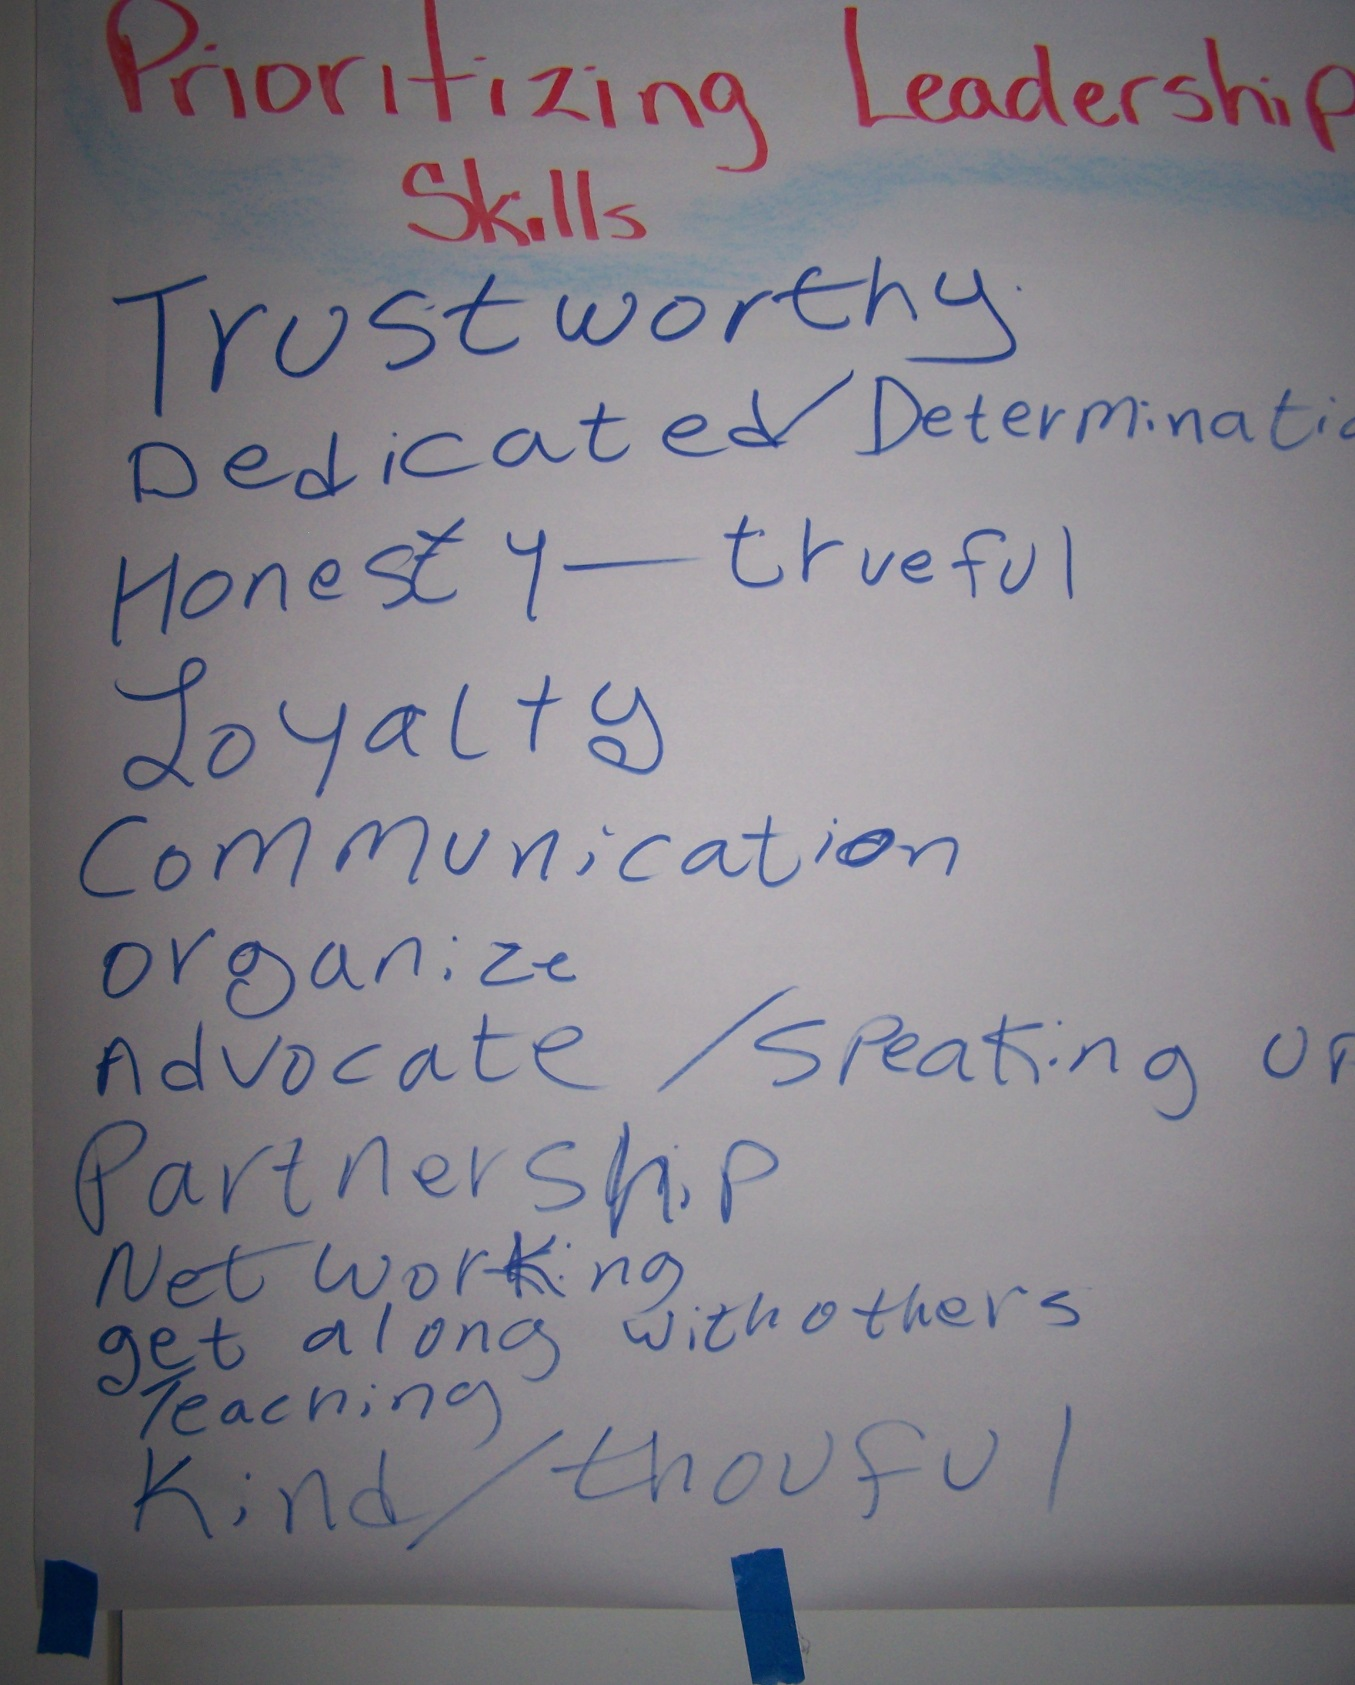 Prioritizing Leadership
Skills
Trustworthy
Dedicated/Determinatio
Honesty—trueful
Loyalty
Communication
organize
Advocate /Speaking up
Partnership
Networking
get along with others
Teaching
Kind/thouful